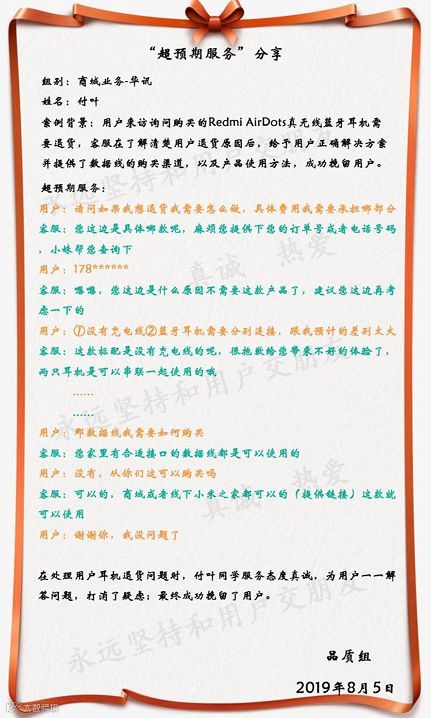 “超预期服务”分享
组别：商城业务-华讯
姓名：付叶
案例背景：用户来访询问购买的Redmi AirDots真无线蓝牙耳机需
要退货，客服在了解清楚用户退货原因后，给予用户正确解决方案
并提供了数据线的购买渠道，以及产品使用方法，成功挽留用户。
超预期服务：
用户：请问如果我想退货我需要怎么做，具体费用我需要承担哪部分
客服：您这边是具体哪款呢，麻烦您提供下您的订单号或者电话号码
，小妹帮您查询下
用户：178******
客服：嗯嗯，您这边是什么原因不需要这款产品了，建议您这边再考
虑一下的
用户：①没有充电线②蓝牙耳机需要分别连接，跟我预计的差别太大
客服：这款标配是没有充电线的呢，很抱歉给您带来不好的体验了，
两只耳机是可以串联一起使用的哦
……
……
用户：那数据线我需要如何购买
客服：您家里有合适接口的数据线都是可以使用的
用户：没有，从你们这可以购买吗
客服：可以的，商城或者线下小米之家都可以的（提供链接）这款就
可以使用
用户：谢谢你，我没问题了
在处理用户耳机退货问题时，付叶同学服务态度真诚，为用户一一解
答问题，打消了疑虑；最终成功挽留了用户。
品质组
2019年8月5日
永远坚持和用户交朋友
真诚 热爱
永远坚持和用户交朋友
真诚 热爱
永远坚持和用户交朋友